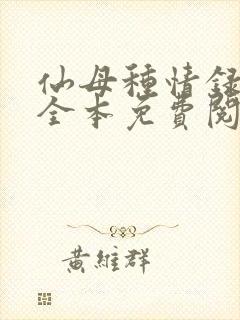 仙母種情録
全本免費閱
黃維群